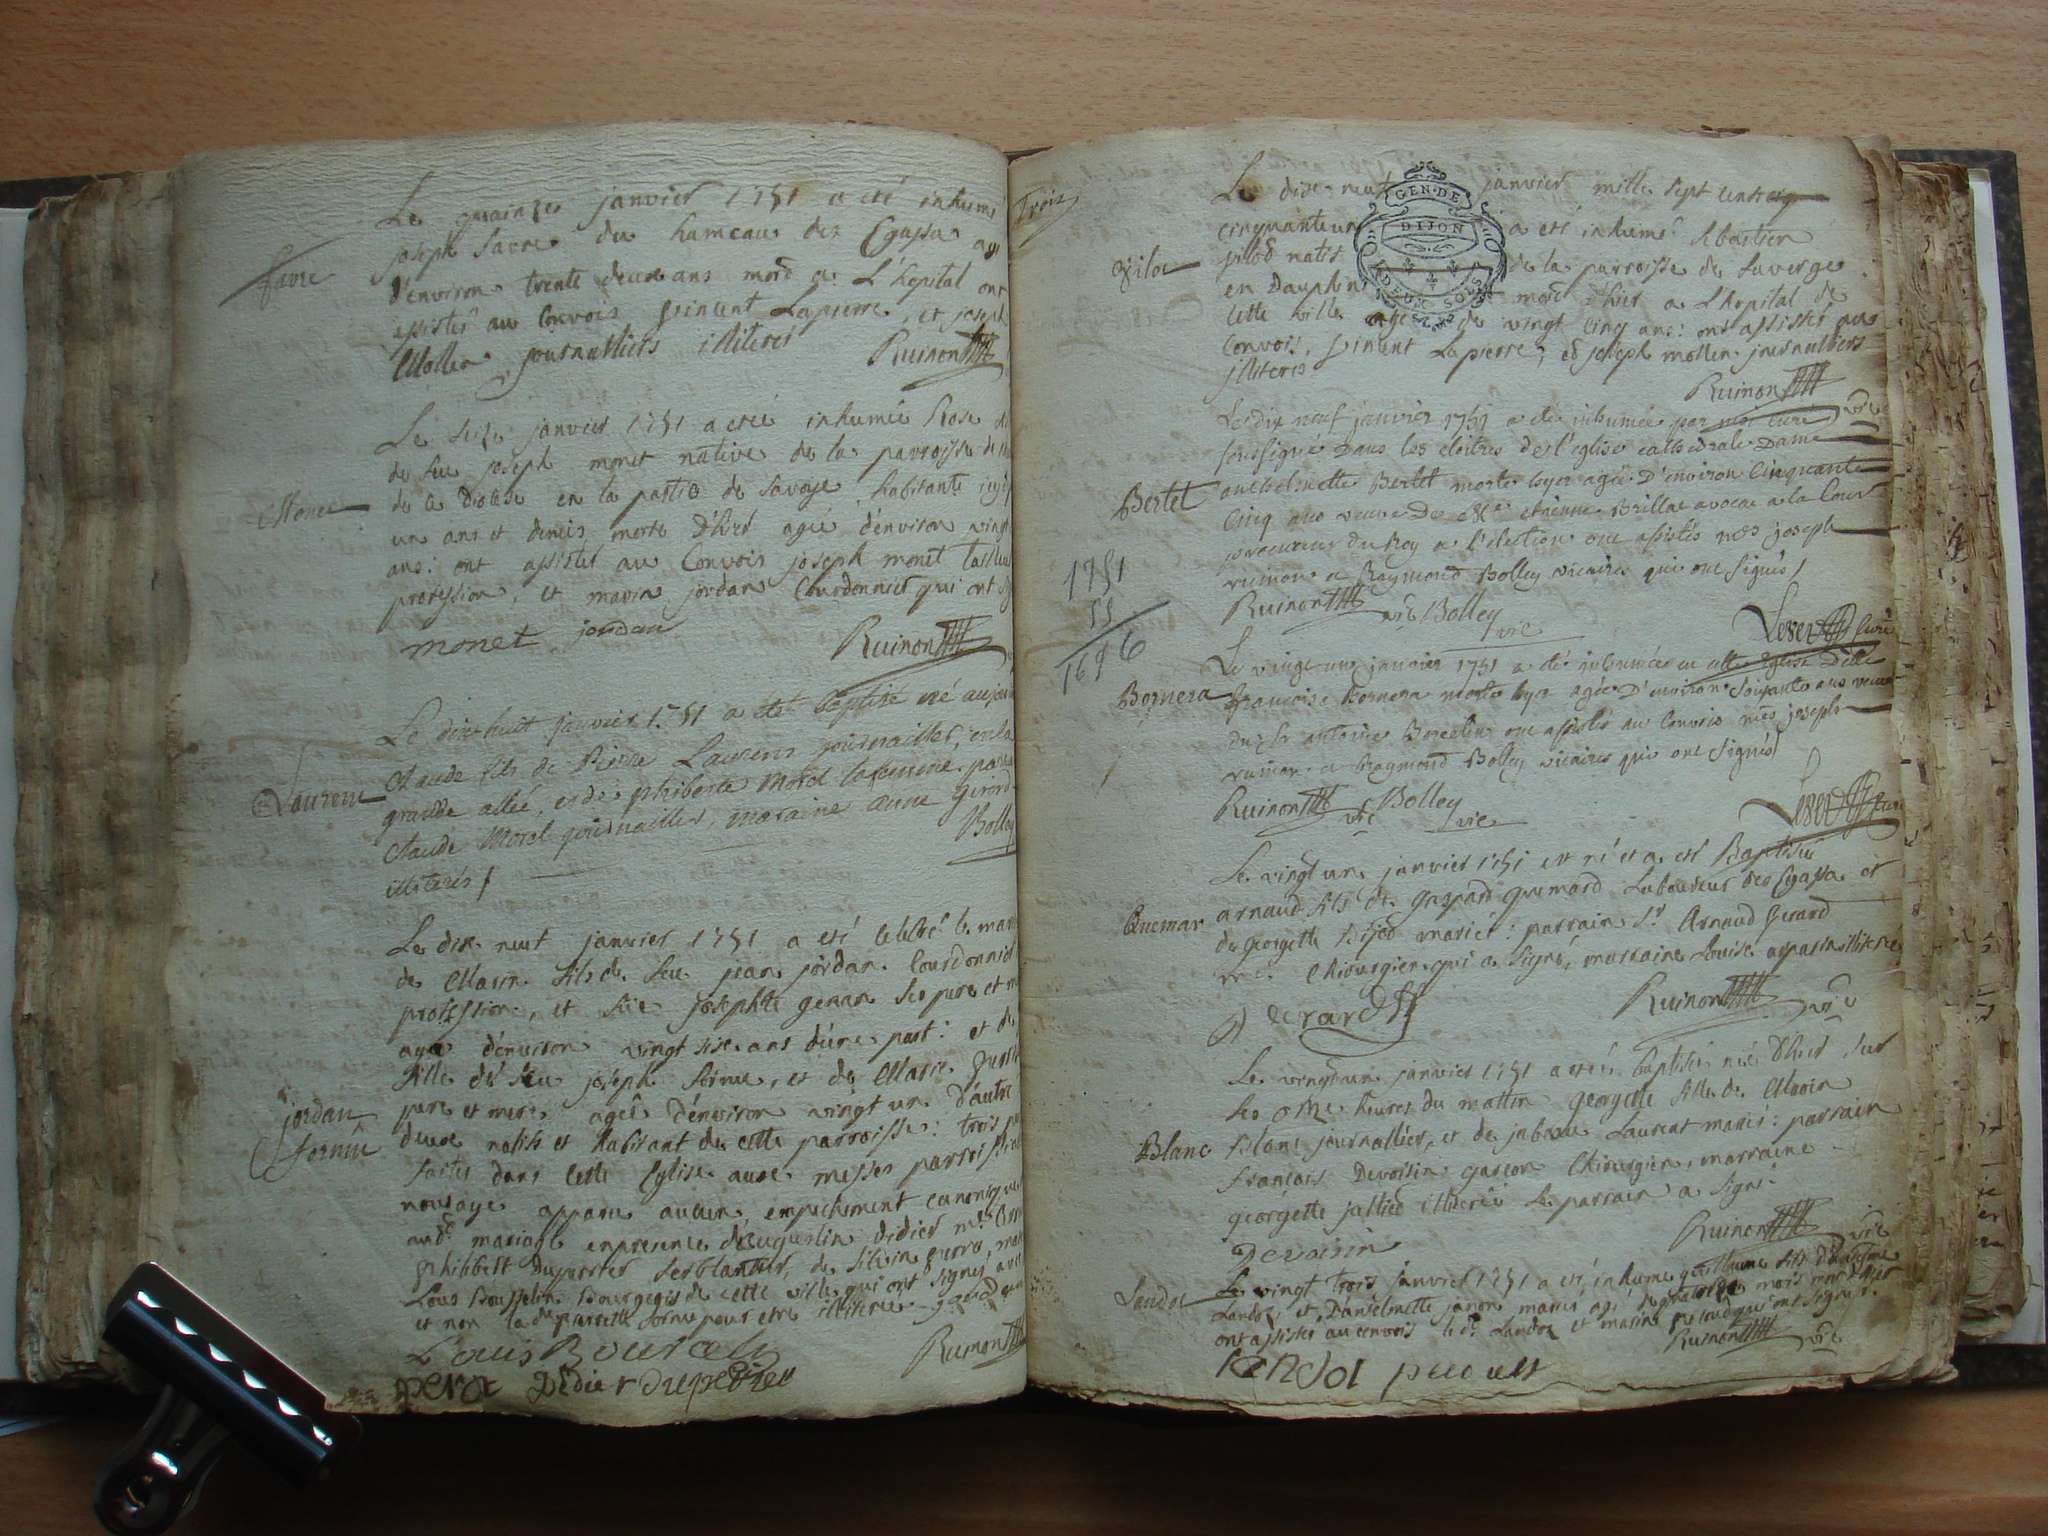 Le quainze janvier 1751 a eté inhumé
joseph favre du hameau des Egassa agé
d'environ trente deux ans mord a L'hopital ont
assister au Convois vincent Lapierre, et joseph
Mollin journalliers illiteres Ruinon
favre
Le seize janvier 1751 a etée inhumée Rose
de feu joseph monet native de la parroisse de
de ce Diocese en la partie de Savoye, habitante
un ans et demis morte D'hier agée d'environ vingt
ans: ont assister au Convois joseph monet
profession, et marin jordan Courdonnier qui ont
monet jordan Ruinon
Monet
Le dix huit janvier 1751 a eté baptisé né
Claude fils de Pierre Laurens journallier, en la
grande allée, et de phiberte Morel sa femme.
Claude Morel journallier, maraine anne Girord
illiterés Bolley
Laurent
Le dix neuf janvier 1751 a eté celebré le
de Marin fils de feu jean jordan Courdonnier
profession, et feüe josephte genan ses pere et
agé d'environ vingt six ans d'une part: et de
fille de feu joseph fornu, et de Marie
pere et mere agée d'environ vingt un d'autre
deux natifs et habitant de cette parroisse: trois
faites dans cette Eglise aux messes parroissiales
nousaye apparu aucun empechement canonique
aud. mariage enpresence d'
phibbert Duperrier ferblantier, de
Louis Bourgeois de cette ville qui ont signés
et non la d. pour etre illiteree
Louis
pera Didier duperier Ruinon
jordan
fornu
Trois
Le dix neuf janvier mille sept cents
cinquante un a eté inhumé sebastien
pilod natif de la parroisse de
en Dauphiné mord d'hier a L'hopital de
cette ville agé de vingt cinq ans: ont assister au
Convois, vincent Lapierre, et joseph mollin journalliers
illiteris
Ruinon vre
GEN·DE
DIJON
DEUX SOLS
pilot
Le dix neuf janvier 1751 a été inhumée par moi curé
soussigné dans les cloitres de l'eglise cathedrale Dame
anthelmette Bertet morte hyer agée D'environ cinquante
cinq ans veuve De Me etienne Brillat avocat a la Cour
procureur du Roy a l'election ont assistés mes joseph
ruinon et Raymond Bolley vicaires qui ont signés
Ruinon vre Bolley vic
Curé
Bertet
1751
55
1696
Le vingt un janvier 1751 a été inhumée en cette Eglise Delle
françoise Bornera morte hyer agée D'environ soixante ans veuve
du sr antoine ont assistés au convois mes joseph
ruinon et Raymond Bolley vicaires qui ont signés
Ruinon vre Bolley vic Curé
Bornera
Le vingt un janvier 1751 est né et a eté Baptisé
arnaud fils de gaspard quemard Laboureur des Egassa et
de georgette mariés: parrain Sr Arnaud Gerard
me Chiourgien qui a signé, marraine Louise illiterée
Gerard Ruinon vre
Quemar
Le vingt un janvier 1751 a etée baptisée née d'hier sur
les onze heures du mattin georgette fille de Marin
Blanc journallier, et de jabeau Laurent mariés: parrain
francois Devoisin garçon Chiourgien, marraine
georgette jallied illiterée Le parrain a signé.
Devoisin Ruinon vre
Blanc
Le vingt trois janvier 1751 a eté inhumé guillaume fils d'anthelme
Landoz, et Danthelmette janon mariés agé de mois mort d'hier
ont assister au convois le d. Landoz et marin qui ont signer.
landoz Ruinon vre
Landoz